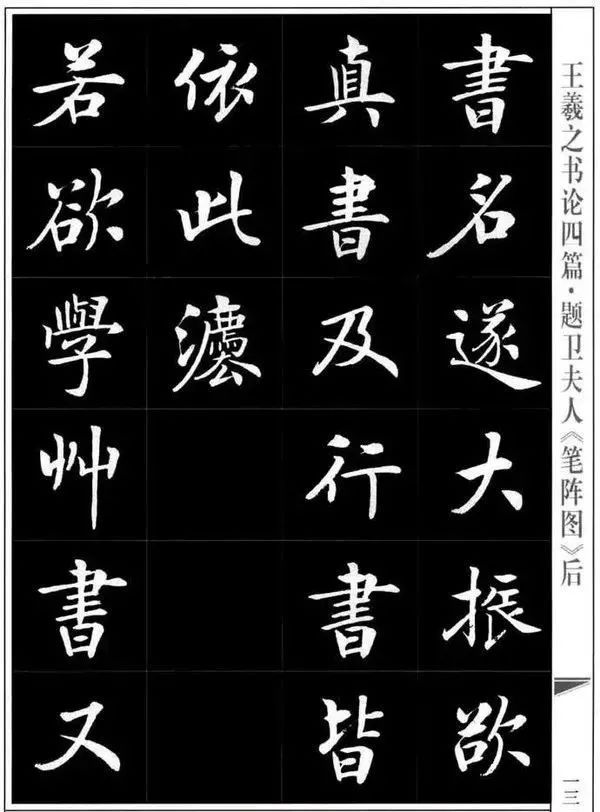 王羲之书论四篇·题卫夫人《笔阵图》后
一三
書名遂大振欲
真書及行書皆
依此灋
若欲學艸書又